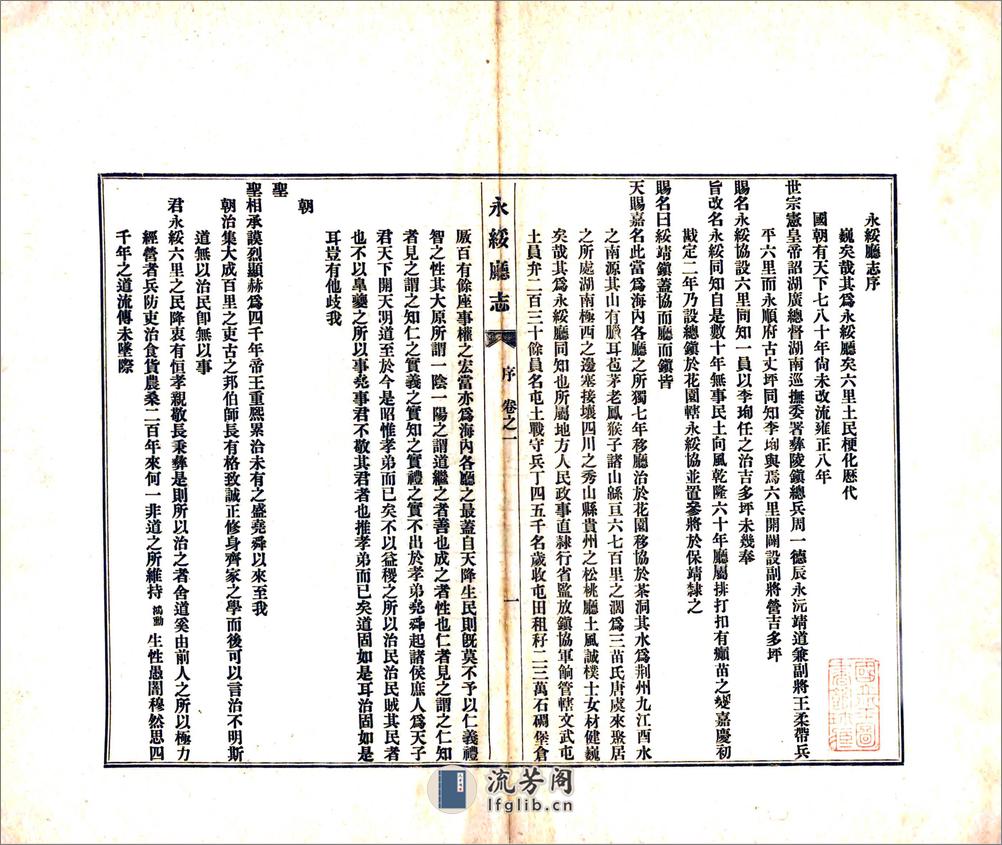 永綏廳志序
巍矣哉其爲永綏廳矣六里土民梗化歷代
國朝有天下七八十年尙未改流雍正八年
世宗憲皇帝詔湖廣總督湖南巡撫委署彝陵鎭總兵周一德辰永沅靖道兼副將王柔帶兵
平六里而永順府古丈坪同知李珣與焉六里開闢設副將營吉多坪
賜名永綏協設六里同知一員以李珣任之治吉多坪未幾奉
旨改名永綏同知自是數十年無事民土向風乾隆六十年廳屬排打扣有癲苗之變嘉慶初
戡定二年乃設總鎭於花園轄永綏協並置參將於保靖隸之
賜名曰綏靖鎭蓋協而廳而鎭皆
天賜嘉名此當爲海內各廳之所獨七年移廳治於花園移協於茶洞其水爲荆州九江酉水
之南源其山有臘耳苞茅老鳳猴子諸山緜亘六七百里之濶爲三苗氏唐虞來聚居
之所處湖南極西之邊寨接壤四川之秀山縣貴州之松桃廳土風誠樸士女材健巍
矣哉其爲永綏廳同知也所屬地方人民政事直隸行省監放鎭協軍餉管轄文武屯
土員弁二百三十餘員名屯土戰守兵丁四五千名歲收屯田租籽二三萬石碉堡倉
永綏廳志
序 卷之一
一
厫百有餘座事權之宏當亦爲海內各廳之最蓋自天降生民則旣莫不予以仁義禮
智之性其大原所謂一陰一陽之謂道繼之者善也成之者性也仁者見之謂之仁知
者見之謂之知仁之實義之實知之實禮之實不出於孝弟堯舜起諸侯庶人爲天子
君天下開天明道至於今是昭惟孝弟而已矣不以益稷之所以治民治民賊其民者
也不以臯夔之所以事堯事君不敬其君者也推孝弟而已矣道固如是耳治固如是
耳豈有他歧我
朝
聖
聖相承謨烈顯赫爲四千年帝王重熙累治未有之盛堯舜以來至我
朝治集大成百里之吏古之邦伯師長有格致誠正修身齊家之學而後可以言治不明斯
道無以治民卽無以事
君永綏六里之民降衷有恒孝親敬長秉彝是則所以治之者舍道奚由前人之所以極力
經營者兵防吏治食貨農桑二百年來何一非道之所維持鴻勳生性愚闇穆然思四
千年之道流傳未墜際
流芳阁
lfglib.cn